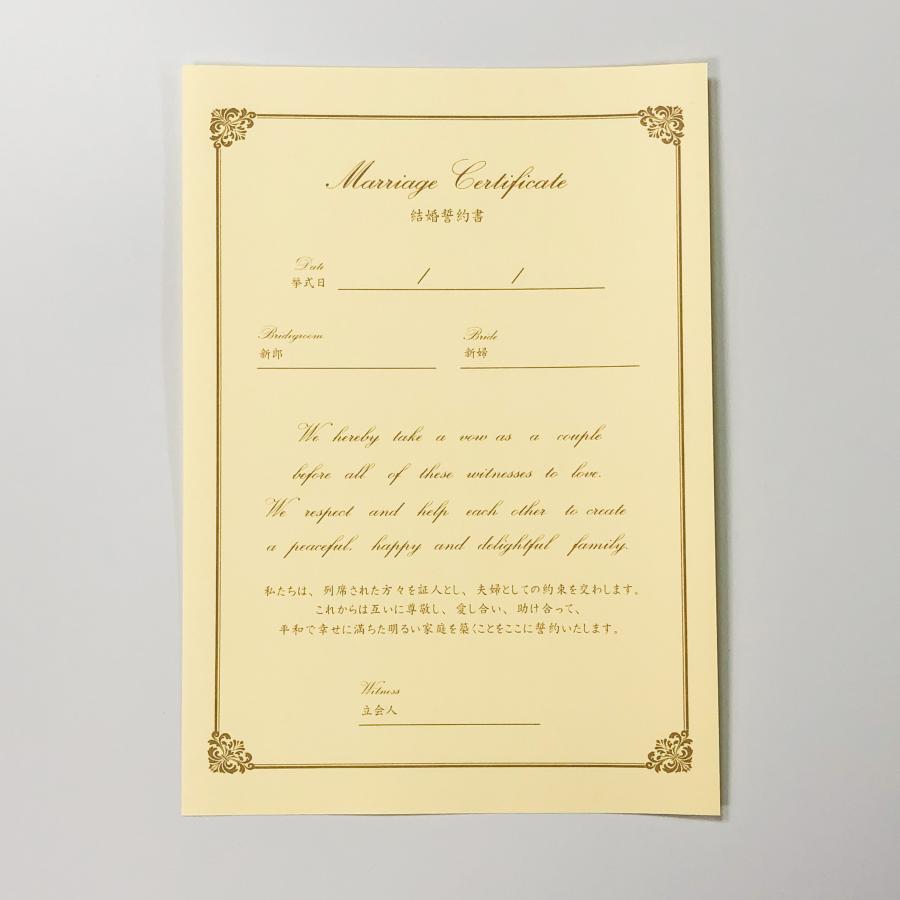 Marriage Certificate
結婚誓約書
Date
挙式日 / /
Bridegroom
新郎
Bride
新婦
We hereby take a vow as a couple
before all of these witnesses to love.
We respect and help each other to create
a peaceful, happy and delightful family.
私たちは、列席された方々を証人とし、夫婦としての約束を交わします。
これからは互いに尊敬し、愛し合い、助け合って、
平和で幸せに満ちた明るい家庭を築くことをここに誓約いたします。
Witness
立会人